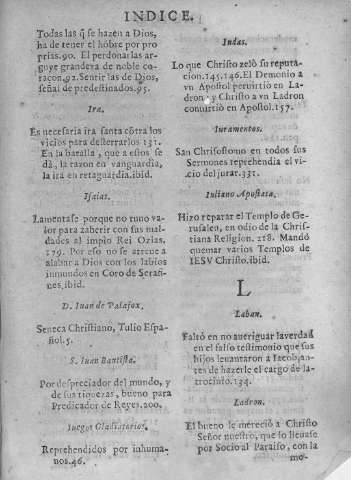 INDICE.
Todas las q̃ se hazen a Dios,
ha de tener el hõbre por pro
prias.92. El perdonarlas ar-
guye grandeza de noble co-
raçon.92. Sentir las de Dios,
señal de predestinados.93.
Ira.
Es necesaria ira santa cõtra los
vicios para desterrarlos 131.
En la batalla, que a estos se
dà, la razon en vanguardia,
la ira en retaguardia.ibid.
Isaias.
Lamentase porque no tuuo va-
lor para zaherir con sus mal-
dades al impio Rei Ozias.
179. Por eso no se atreue a
alabar a Dios con los labios
inmundos en Coro de Serafi-
nes.ibid.
D. Iuan de Palafox.
Seneca Christiano, Tulio Espa-
ñol.5.
S. Iuan Bautista.
Por despreciador del mundo, y
de sus riquezas, bueno para
Predicador de Reyes.200.
Iuegos Gladiatorios.
Reprehendidos por inhuma-
nos.46.
Iudas.
Lo que Christo zelò su reputa-
cion.145.146. El Demonio a
vn Apostol peruirtiò en La-
dron y Christo a vn Ladron
conuirtiò en Apostol.157.
Iuramentos.
San Chrisostomo en todos sus
Sermones reprehendia el vi-
cio del jurar.331.
Iuliano Apostata.
Hizo reparar el Templo de Ge-
rusalen, en odio de la Chris-
tiana Religion. 218. Mandò
quemar varios Templos de
IESV Christo.ibid.
L
Laban.
Faltò en no aueriguar la verdad
en el falso testimonio que sus
hijos leuantaron a Iacob, an-
tes de hazerle el cargo de la-
trocinio.134.
Ladron.
El bueno le mereciò a Christo
Señor nuestro, que lo lleuase
por Socio al Paraiso, con la
mo-